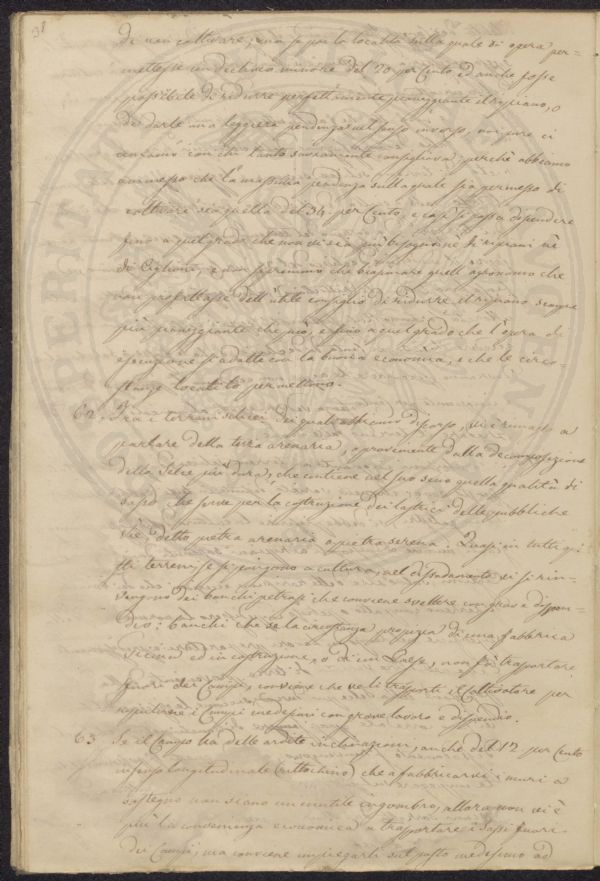 38
di non coltivare; ma se poi la località sulla quale si opera per=
mettesse un declivio minore del 20 per cento ed anche fosse
possibile di ridurre perfettamente pianeggiante il ripiano, o
di darle una leggiera pendenza nel senso inverso, noi pure ci
con chi tanto saviamente consigliava, perchè abbiamo
ammesso che la massima pendenza sulla quale sia permesso di
coltivare sia quella del 34. per Cento, e casi si possa
fino a quel grado che non vi sia più bisogno nè di ripiani nè
di Ciglioni, e non sapremmo che biasimare quell'agronomo che
non profittasse dell'utile consiglio di ridurre il ripiano sempre
più pianeggiante che può, e fino a quel grado che l'opera di
esecuzione si adatta con la buona economia, e che le circo=
stanze locali lo permettono.
62. Fra i terreni silicei dei quali abbiamo discorso, vi è rimasto a
parlare della terra arenaria, o proveniente dalla decomposizione
della Selce più dura, che contiene nel suo seno quella qualità di
sasso che serve per la costruzione dei lastrici delle pubbliche
vie, detto pietra arenaria o pietra serena. Quasi in tutti que=
sti terreni, se si pongono a cultura, nel di si rin=
vengono dei banchi petrosi che conviene svellere con gran dispen=
dio: banchi che se la circostanza propizia di una fabbrica
vicina ed in costruzione, o di un Paese, non fa trasportare
fuori dei Campi, conviene che ve li trasporti il Coltivatore per
ripulirne i Campi medesimi con grave lavoro e dispendio.
63. Se il Campo ha delle ardite inclinazioni, anche del 12 per Cento
in senso longitudinale (rittochino) che a fabbricarvi i muri a
sostegno non siano un inutile ingombro, allora non vi è
più la convenienza economica a trasportare i sassi fuori
dei Campi, ma conviene impiegarli sul posto medesimo ad